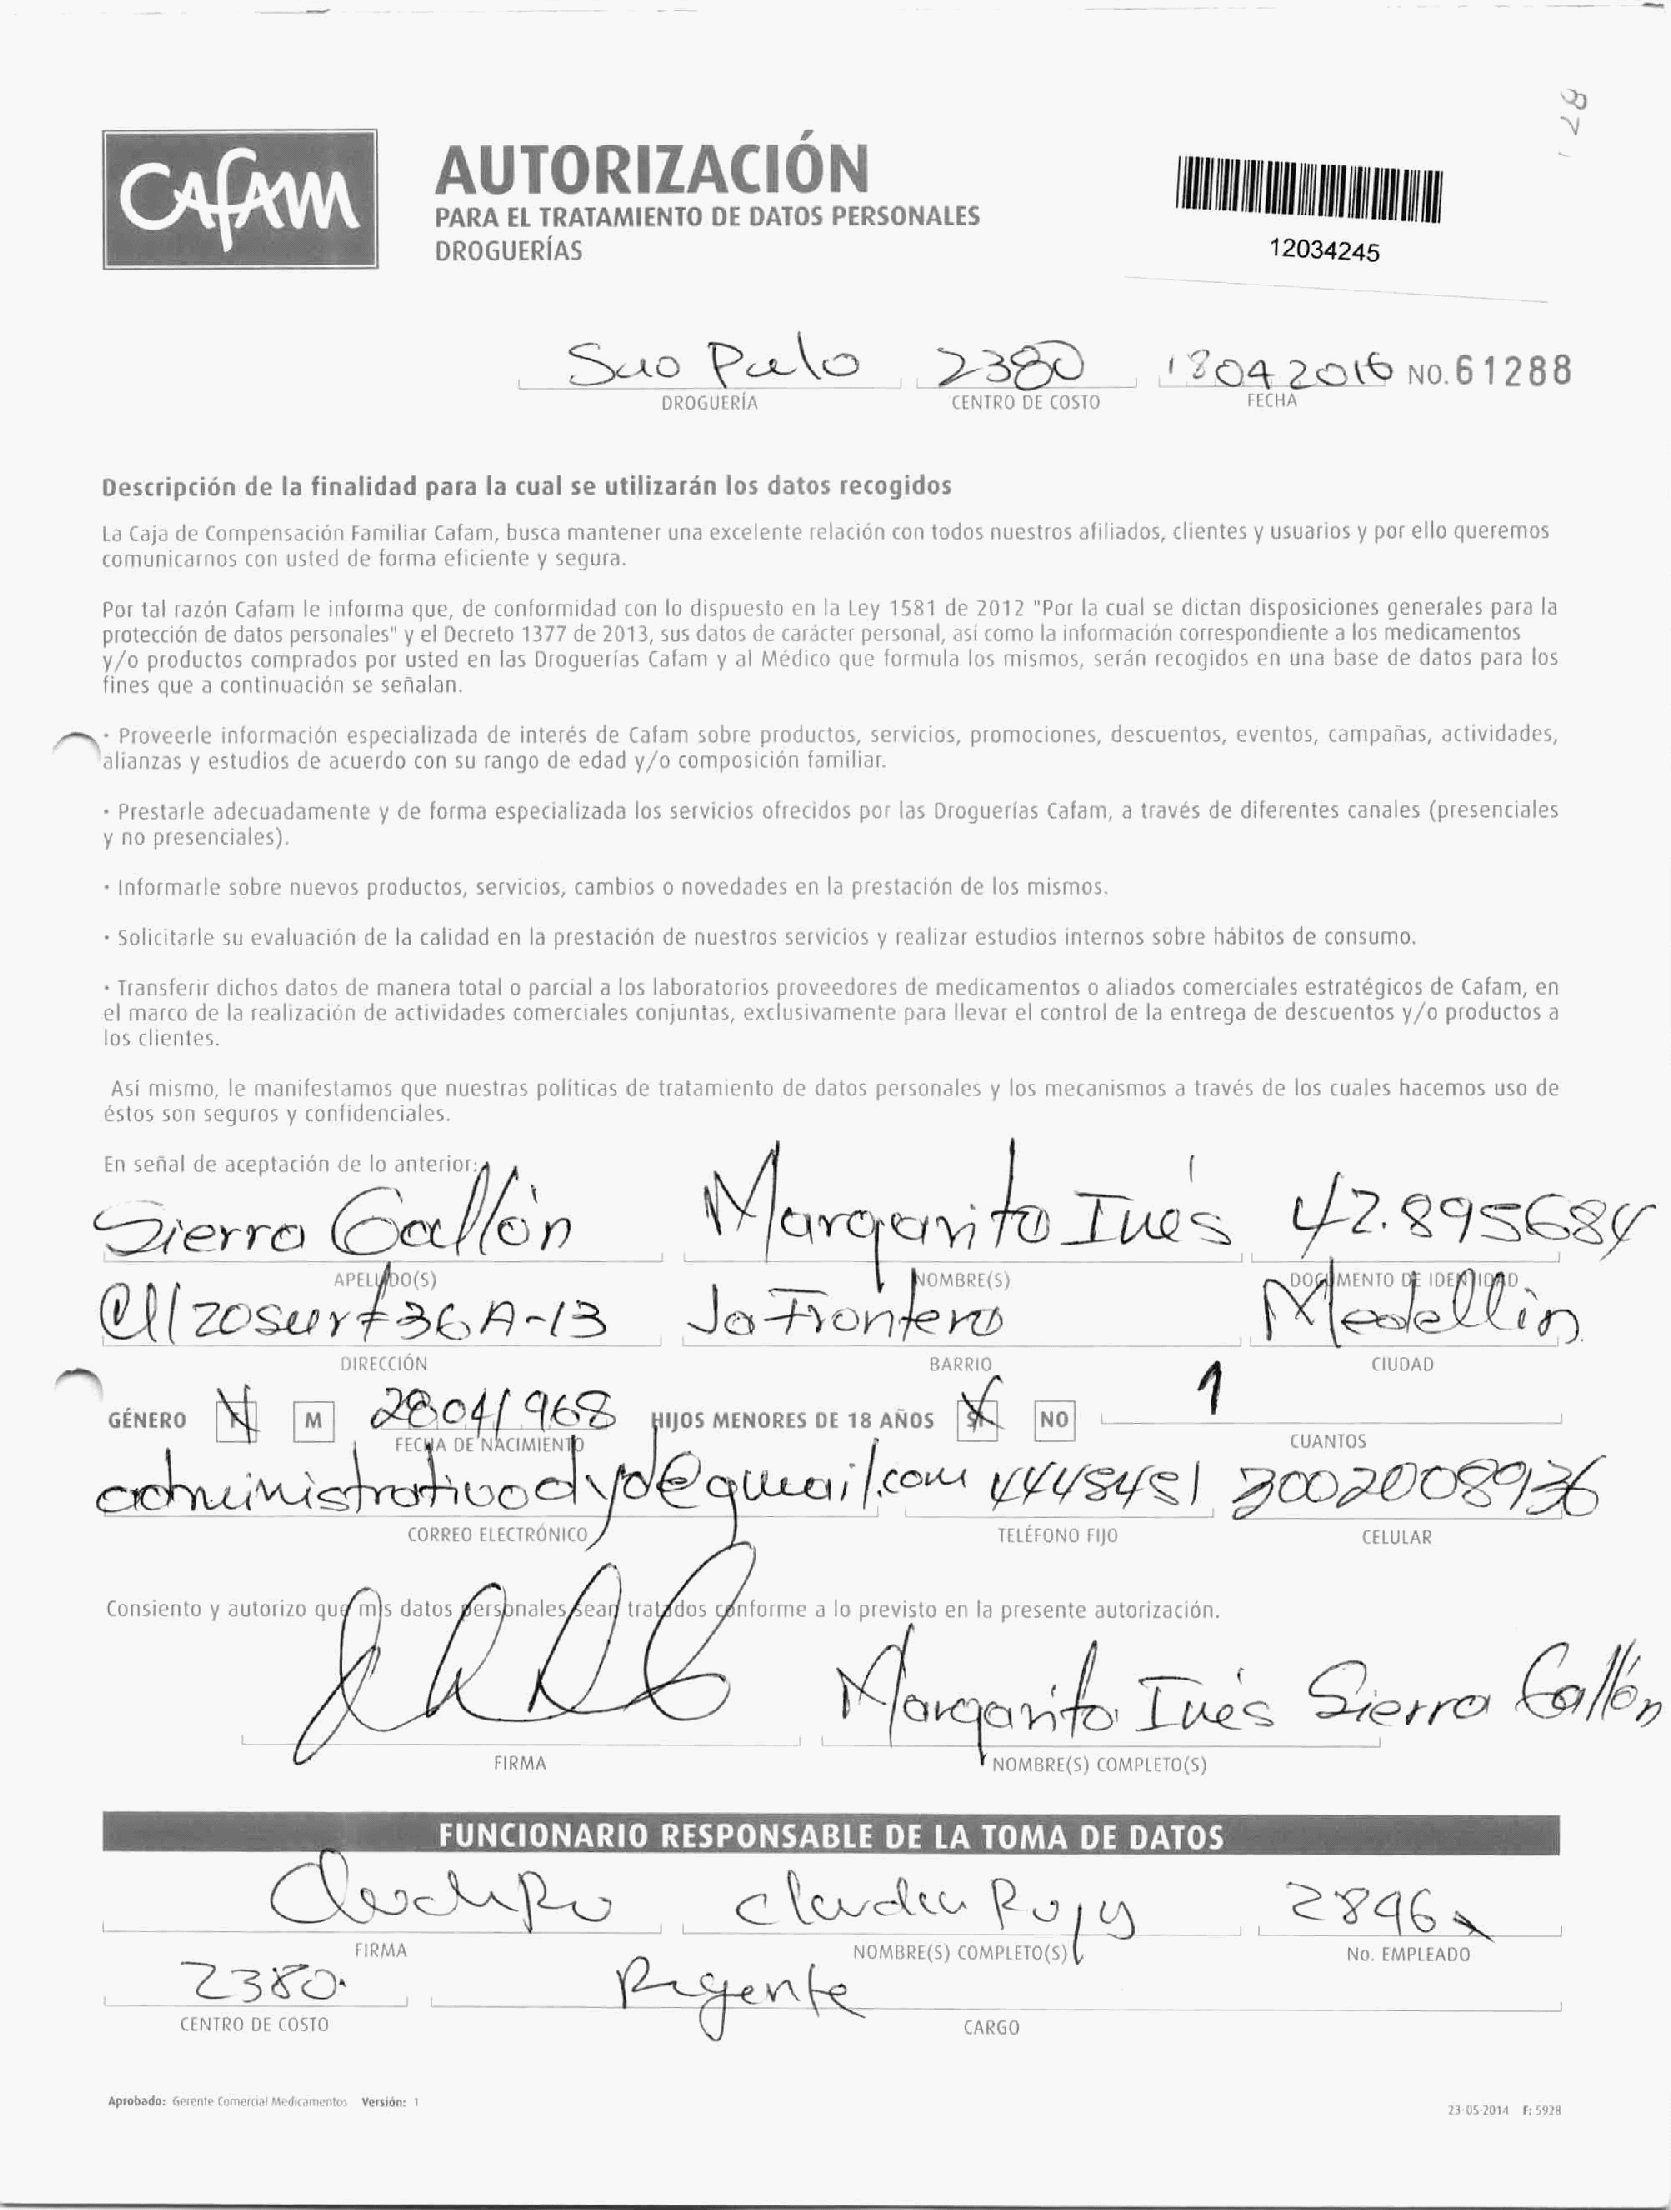 CAFAM
AUTORIZACIÓN
PARA EL TRATAMIENTO DE DATOS PERSONALES
DROGUERÍAS
12034245
871
Sao Paulo 2380 18042016 NO. 61288
DROGUERÍA CENTRO DE COSTO FECHA
Descripción de la finalidad para la cual se utilizarán los datos recogidos
La Caja de Compensación Familiar Cafam, busca mantener una excelente relación con todos nuestros afiliados, clientes y usuarios y por ello queremos
comunicarnos con usted de forma eficiente y segura.
Por tal razón Cafam le informa que, de conformidad con lo dispuesto en la Ley 1581 de 2012 "Por la cual se dictan disposiciones generales para la
protección de datos personales" y el Decreto 1377 de 2013, sus datos de carácter personal, así como la información correspondiente a los medicamentos
y/o productos comprados por usted en las Droguerías Cafam y al Médico que formula los mismos, serán recogidos en una base de datos para los
fines que a continuación se señalan.
· Proveerle información especializada de interés de Cafam sobre productos, servicios, promociones, descuentos, eventos, campañas, actividades,
alianzas y estudios de acuerdo con su rango de edad y/o composición familiar.
· Prestarle adecuadamente y de forma especializada los servicios ofrecidos por las Droguerías Cafam, a través de diferentes canales (presenciales
y no presenciales).
· Informarle sobre nuevos productos, servicios, cambios o novedades en la prestación de los mismos.
· Solicitarle su evaluación de la calidad en la prestación de nuestros servicios y realizar estudios internos sobre hábitos de consumo.
· Transferir dichos datos de manera total o parcial a los laboratorios proveedores de medicamentos o aliados comerciales estratégicos de Cafam, en
el marco de la realización de actividades comerciales conjuntas, exclusivamente para llevar el control de la entrega de descuentos y/o productos a
los clientes.
Así mismo, le manifestamos que nuestras políticas de tratamiento de datos personales y los mecanismos a través de los cuales hacemos uso de
éstos son seguros y confidenciales.
En señal de aceptación de lo anterior:
Sierra Gallón Margarita Inés 42.895684
APELLIDO(S) NOMBRE(S) DOCUMENTO DE IDENTIDAD
Cll 20sur # 36A-13 La Frontera Medellín
DIRECCIÓN BARRIO CIUDAD
GÉNERO M 28041968 HIJOS MENORES DE 18 AÑOS SÍ NO 1
FECHA DE NACIMIENTO CUANTOS
administrativodyd@gmail.com 4448481 3002008936
CORREO ELECTRÓNICO TELÉFONO FIJO CELULAR
Consiento y autorizo que mis datos personales sean tratados conforme a lo previsto en la presente autorización.
Margarita Inés Sierra Gallón
FIRMA NOMBRE(S) COMPLETO(S)
FUNCIONARIO RESPONSABLE DE LA TOMA DE DATOS
Claudia Rojas 2896
FIRMA NOMBRE(S) COMPLETO(S) No. EMPLEADO
2380. Regente
CENTRO DE COSTO CARGO
Aprobado: Gerente Comercial Medicamentos Versión: 1
23-05-2014 F: 5928